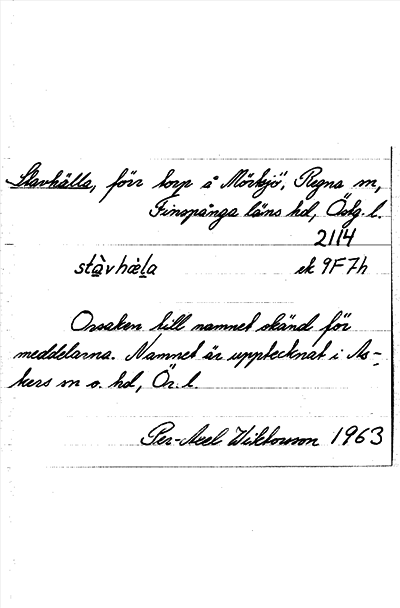 Stavhälla, förr torp å Mörksjö, Regna sn,
Finspånga läns hd, Östg. l.
2114
stàvhæ̀la ek 9F7h
Orsaken till namnet okänd för
meddelarna. Namnet är upptecknat i As-
kers sn o. hd, Ör. l.
Per-Axel Wiktorsson 1963